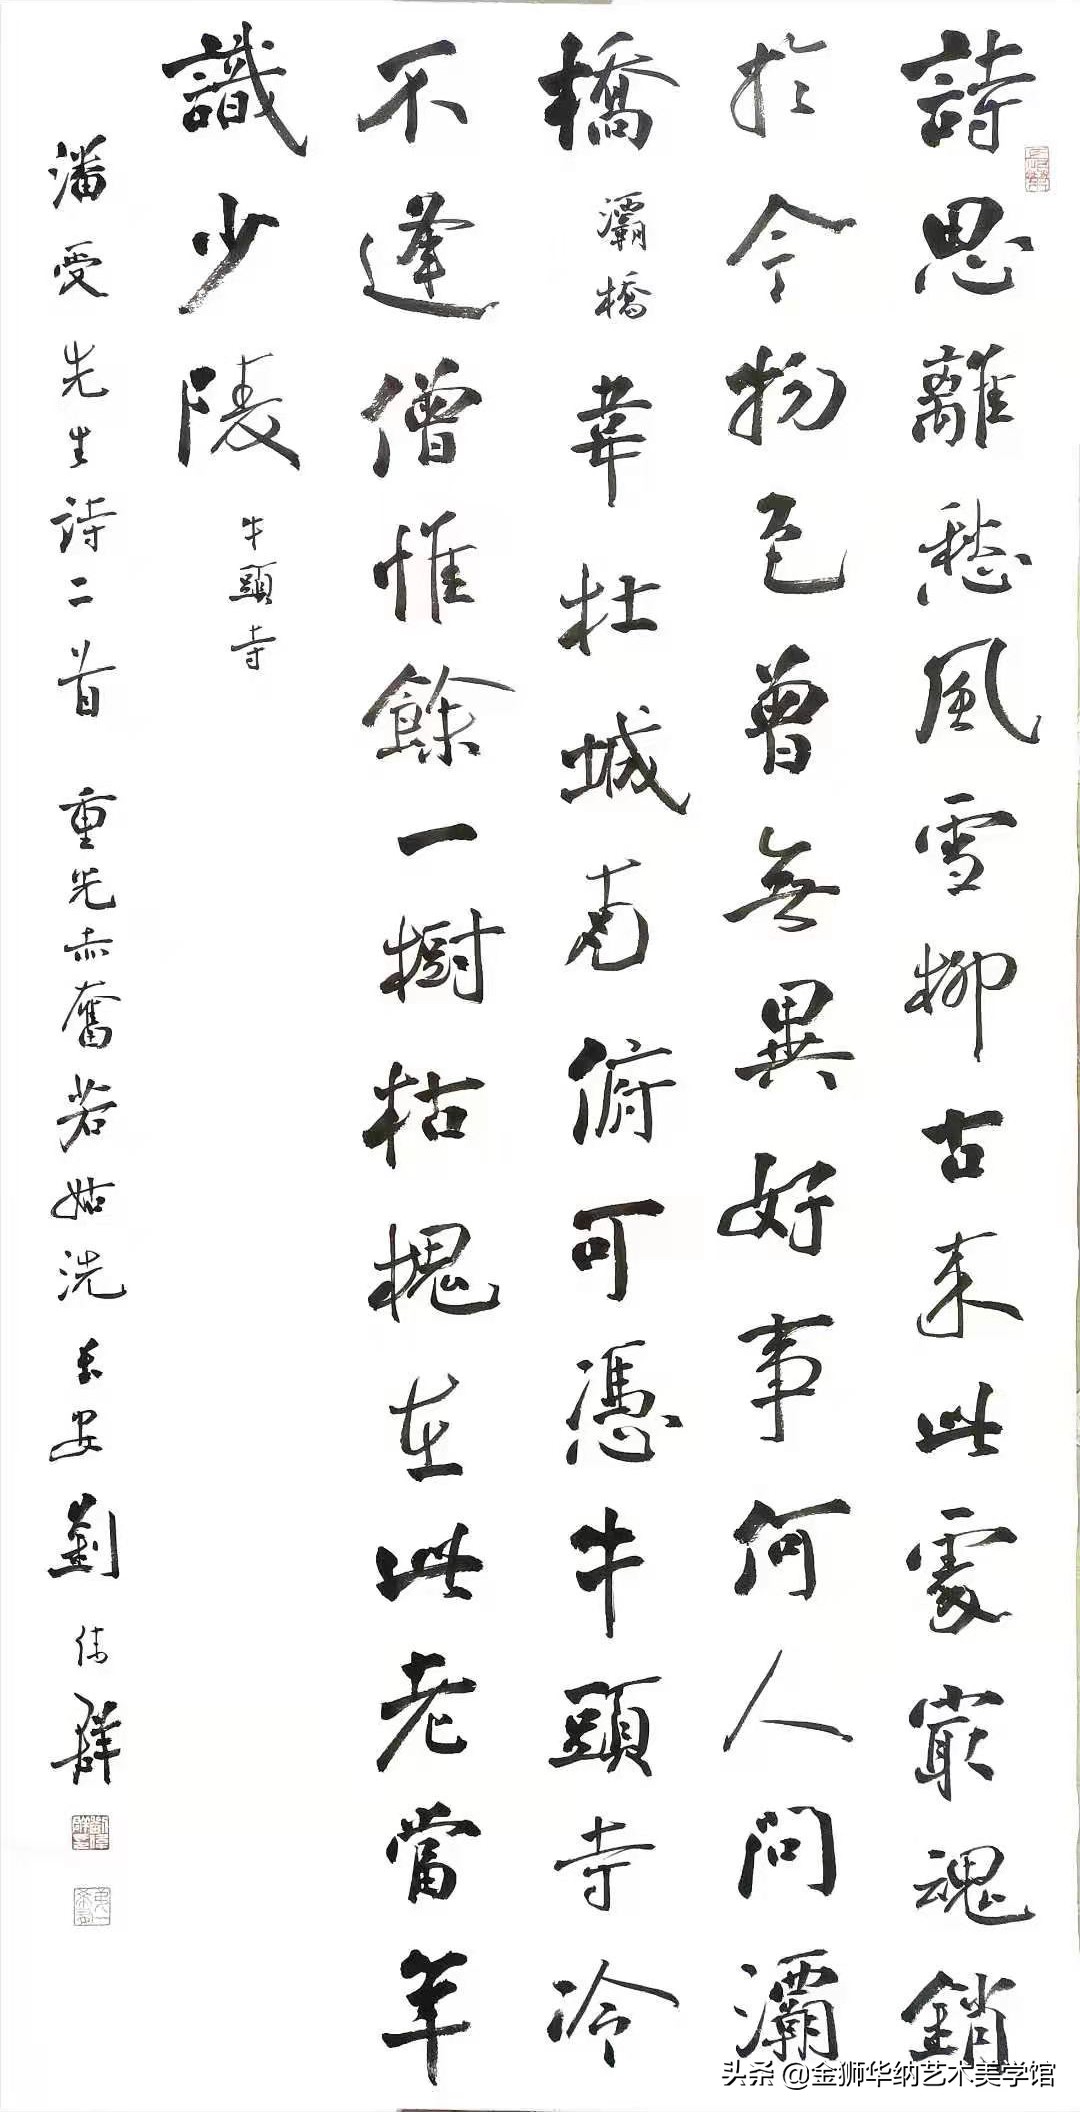 詩思離愁風雪柳古來此處最魂銷
於今物色曾無異好事何人問灞
橋
灞橋
韋杜城南俯可憑牛頭寺冷
不逢僧惟餘一樹枯槐在此老當年
識少陵
牛頭寺
潘受先生詩二首 重光赤奮若姑洗 長安劉偉群
头条@金狮华纳艺术美学馆